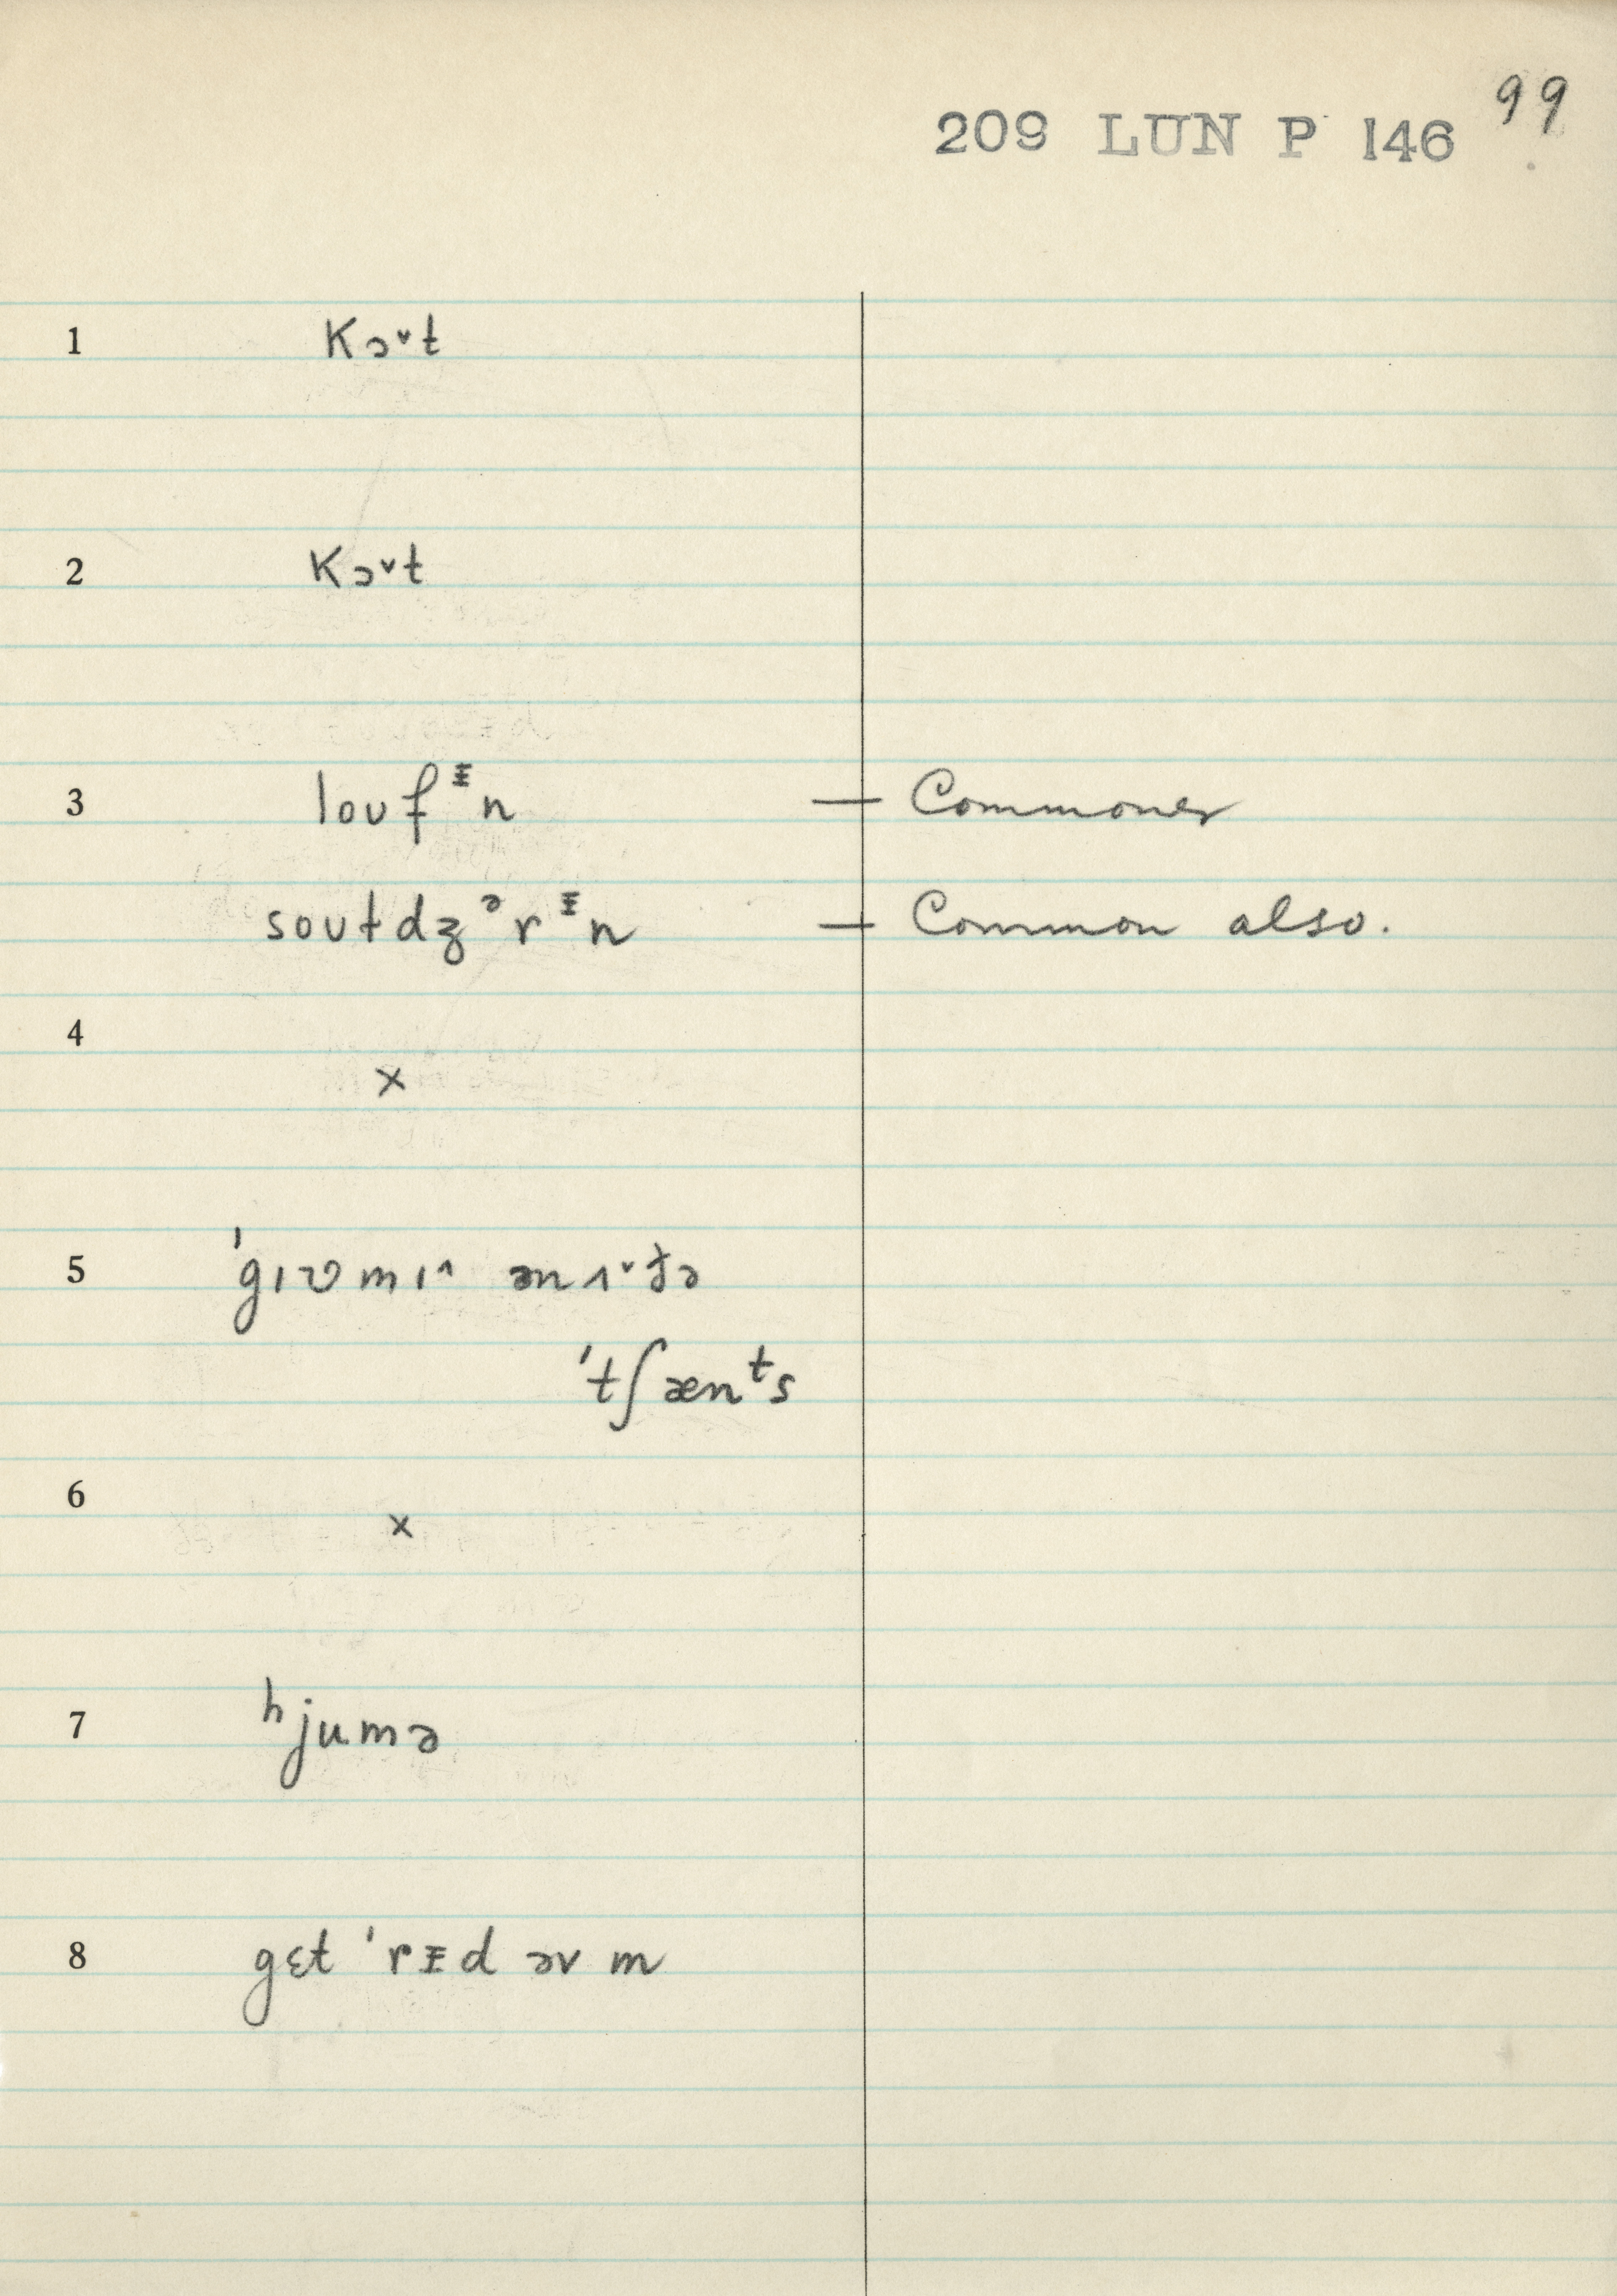 99
209 LUN P 146
1 kɔ˅t
2 kɔ˅t
3 louf ᵻn — Commoner
soutdʒ ᵊr ᵻn — Common also.
4 ×
5 ˈgɪv mɪ˄ ənʌ˅ðə
ˈtʃænᵗs
6 ×
7 ʰjumə
8 gɛt ˈrᵻd əv m